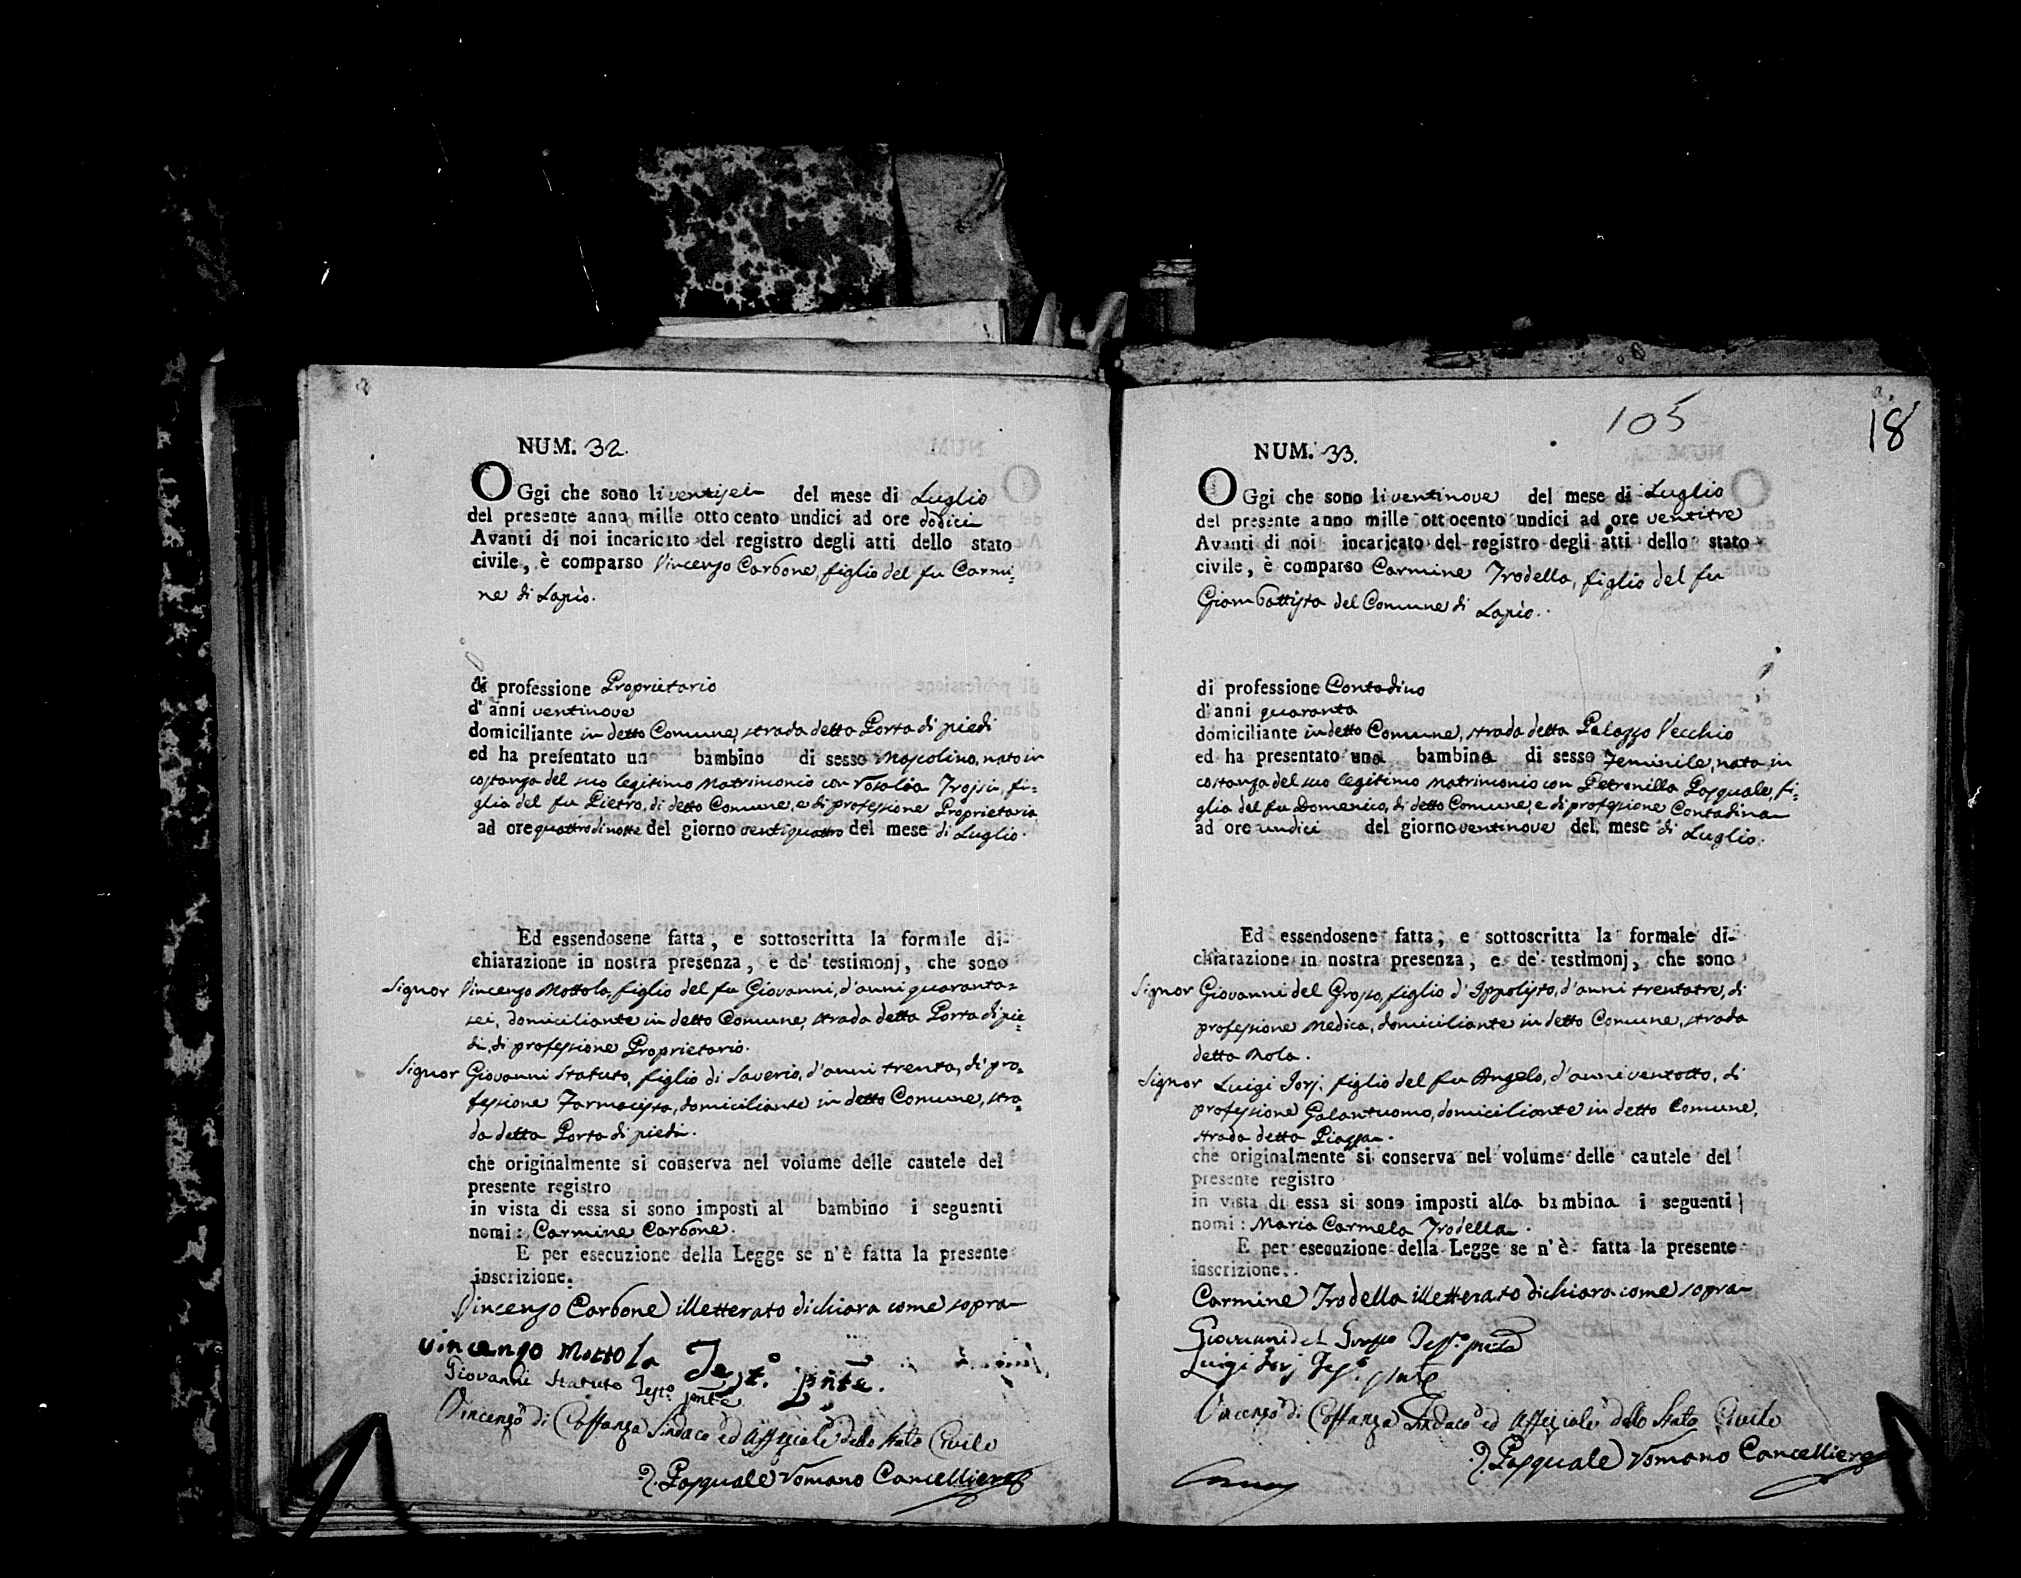 NUM. 32.
OGgi che sono li ventisei del mese di Luglio
del presente anno mille ottocento undici ad ore dodici
Avanti di noi incaricato del registro degli atti dello stato
civile, è comparso Vincenzo Carbone, figlio del fu Carmi-
ne di Lapio.
di professione Proprietario
d'anni ventinove
domiciliante in detto Comune, strada detta Porta di piedi
ed ha presentato un bambino di sesso Mascolino, nato in
costanza del suo legitimo Matrimonio con Rosalia Troisi, fi-
glia del fu Pietro, di detto Comune, e di professione Proprietaria
ad ore quattro di notte del giorno ventiquattro del mese di Luglio.
Ed essendosene fatta, e sottoscritta la formale di-
chiarazione in nostra presenza, e de' testimonj, che sono
Signor Vincenzo Mottola, figlio del fu Giovanni, d'anni quaranta-
sei, domiciliante in detto Comune, strada detta Porta di pie-
di, di professione Proprietario.
Signor Giovanni Statuto, figlio di Saverio, d'anni trenta, di pro-
fessione Farmacista, domiciliante in detto Comune, stra-
da detta Porta di piedi.
che originalmente si conserva nel volume delle cautele del
presente registro
in vista di essa si sono imposti al bambino i seguenti
nomi: Carmine Carbone.
E per esecuzione della Legge se n'è fatta la presente
inscrizione.
Vincenzo Carbone illetterato dichiara come sopra
Vincenzo Mottola Test.o pnte.
Giovanni Statuto Test.o pnte
Vincenzo di Costanza Sindaco ed Uffiziale dello Stato Civile
D. Pasquale Romano Cancelliere
105
18
NUM. 33.
OGgi che sono li ventinove del mese di Luglio
del presente anno mille ottocento undici ad ore ventitre
Avanti di noi incaricato del registro degli atti dello stato
civile, è comparso Carmine Trodella, figlio del fu
Giambattista del Comune di Lapio.
di professione Contadino
d'anni quaranta
domiciliante in detto Comune, strada detta Palazzo Vecchio
ed ha presentato una bambina di sesso Feminile, nata in
costanza del suo legitimo matrimonio con Petronilla Pasquale, fi-
glia del fu Domenico, di detto Comune, e di professione Contadina
ad ore undici del giorno ventinove del mese di Luglio.
Ed essendosene fatta, e sottoscritta la formale di-
chiarazione in nostra presenza, e de' testimonj, che sono
Signor Giovanni del Grosso, figlio d'Ippolisto, d'anni trentatre, di
professione Medica, domiciliante in detto Comune, strada
detta Mola.
Signor Luigi Forj, figlio del fu Angelo, d'anni ventotto, di
professione Galantuomo, domiciliante in detto Comune,
strada detta Piazza.
che originalmente si conserva nel volume delle cautele del
presente registro
in vista di essa si sono imposti alla bambina i seguenti
nomi: Maria Carmela Trodella.
E per esecuzione della Legge se n'è fatta la presente
inscrizione.
Carmine Trodella illetterato dichiara come sopra
Giovanni del Grosso Test.o pnte
Luigi Forj Tes.o pnte
Vincenzo di Costanza Sindaco ed Uffiziale dello Stato Civile
D. Pasquale Romano Cancelliere